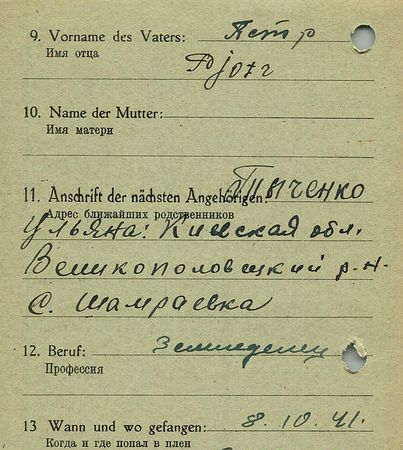 9. Vorname des Vaters: Петр
Имя отца
Pjotr
10. Name der Mutter:
Имя матери
11. Anschrift der nächsten Angehörigen: Тымченко
Адрес ближайших родственников
Ульяна: Киевская обл.
Великополовецкий р-н.
с. Шамраевка
12. Beruf: Земледелец
Профессия
13 Wann und wo gefangen: 8. 10. 41.
Когда и где попал в плен